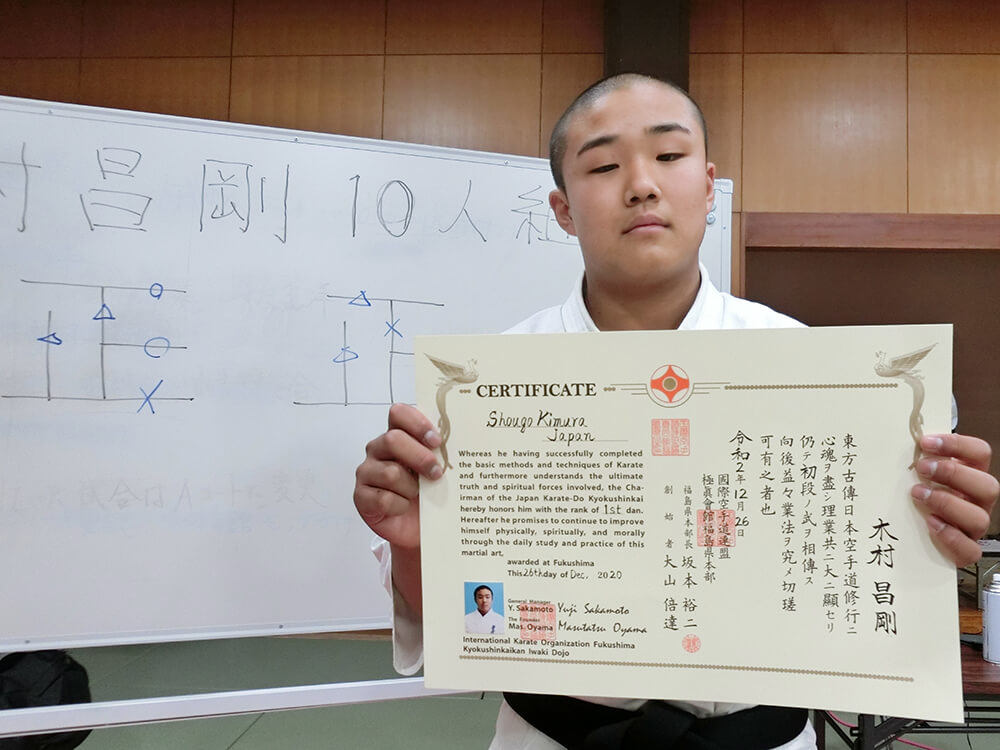 村昌剛 10人組
CERTIFICATE
Shougo Kimura
Japan
Whereas he having successfully completed
the basic methods and techniques of Karate
and furthermore understands the ultimate
truth and spiritual forces involved, the Cha-
irman of the Japan Karate-Do Kyokushinkai
hereby honors him with the rank of 1st dan.
Hereafter he promises to continue to improve
himself physically, spiritually, and morally
through the daily study and practice of this
martial art,
awarded at Fukushima
This 26th day of Dec, 2020
General Manager
Y. Sakamoto Yuji Sakamoto
The Founder
Mas. Oyama Masutatsu Oyama
International Karate Organization Fukushima
Kyokushinkaikan Iwaki Dojo
木村昌剛
東方古傳日本空手道修行ニ
心魂ヲ盡シ理業共ニ大ニ顯セリ
仍テ初段ノ武ヲ相傳ス
向後益々業法ヲ究メ切瑳
可有之者也
令和2年12月26日
國際空手道連盟
極眞會館福島県本部
福島県本部長 坂本裕二
創始者 大山倍達